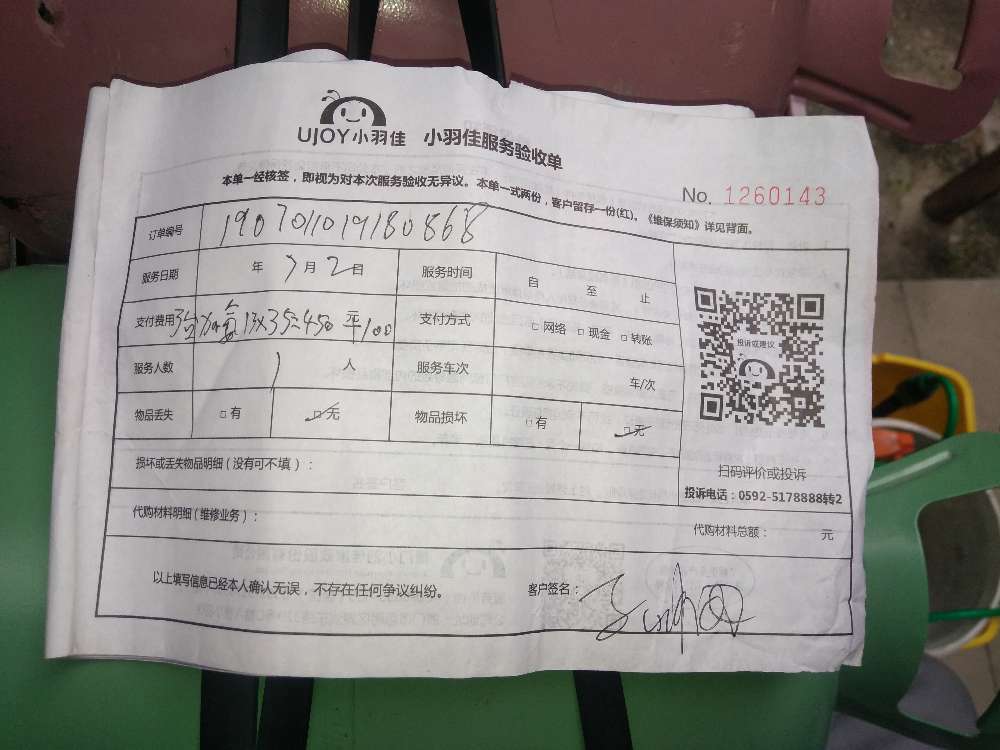 UJOY小羽佳 小羽佳服务验收单
本单一经核签，即视为对本次服务验收无异议。本单一式两份，客户留存一份(红)。《维保须知》详见背面。
No. 1260143
订单编号 1907011019180868
服务日期 年 7月2日 服务时间 自 至 止
支付费用 13x35=450 平100 支付方式 □网络 □现金 □转账
服务人数 1人 服务车次 车/次
物品丢失 □有 □无 物品损坏 □有 □无
投诉或建议
扫码评价或投诉
投诉电话：0592-5178888转2
损坏或丢失物品明细（没有可不填）：
代购材料明细（维修业务）： 代购材料总额： 元
以上填写信息已经本人确认无误，不存在任何争议纠纷。 客户签名：